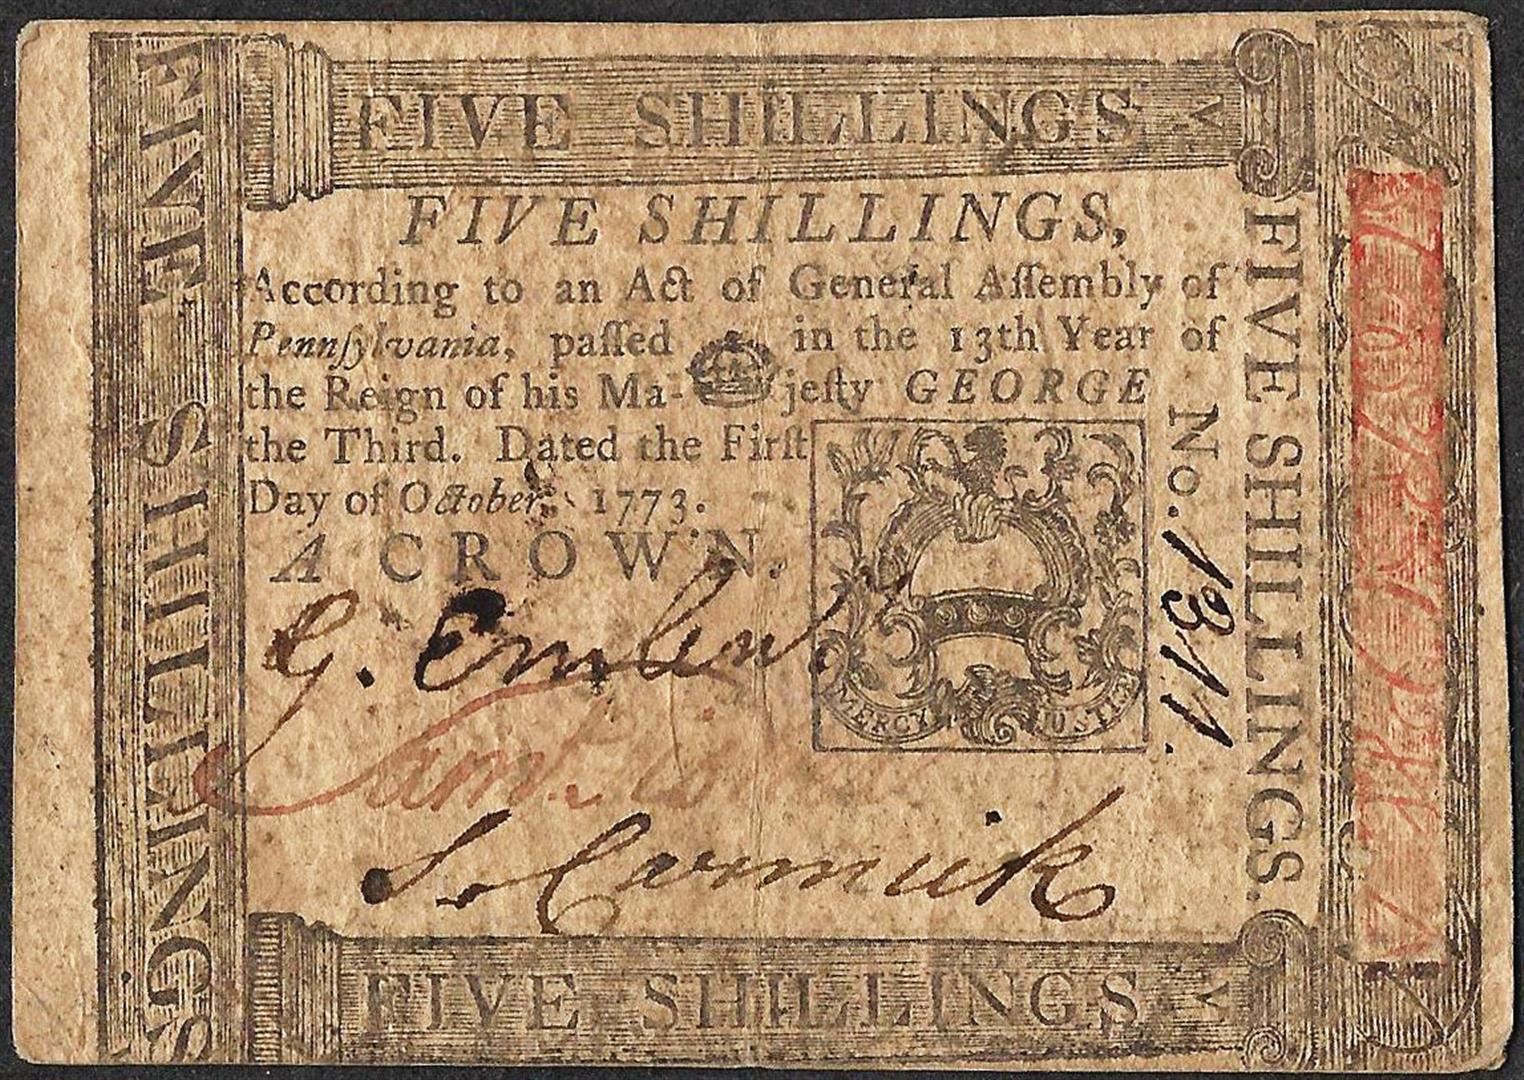 FIVE SHILLINGS V
FIVE SHILLINGS,
According to an Act of General Aſſembly of
Pennſylvania, paſſed in the 13th Year of
the Reign of his Ma-jeſty GEORGE
the Third. Dated the Firſt
Day of October, 1773.
A CROWN.
MERCY JUSTICE
G. Emlen
S. Cormick
FIVE SHILLINGS V
FIVE SHILLINGS
FIVE SHILLINGS.
No. 1311